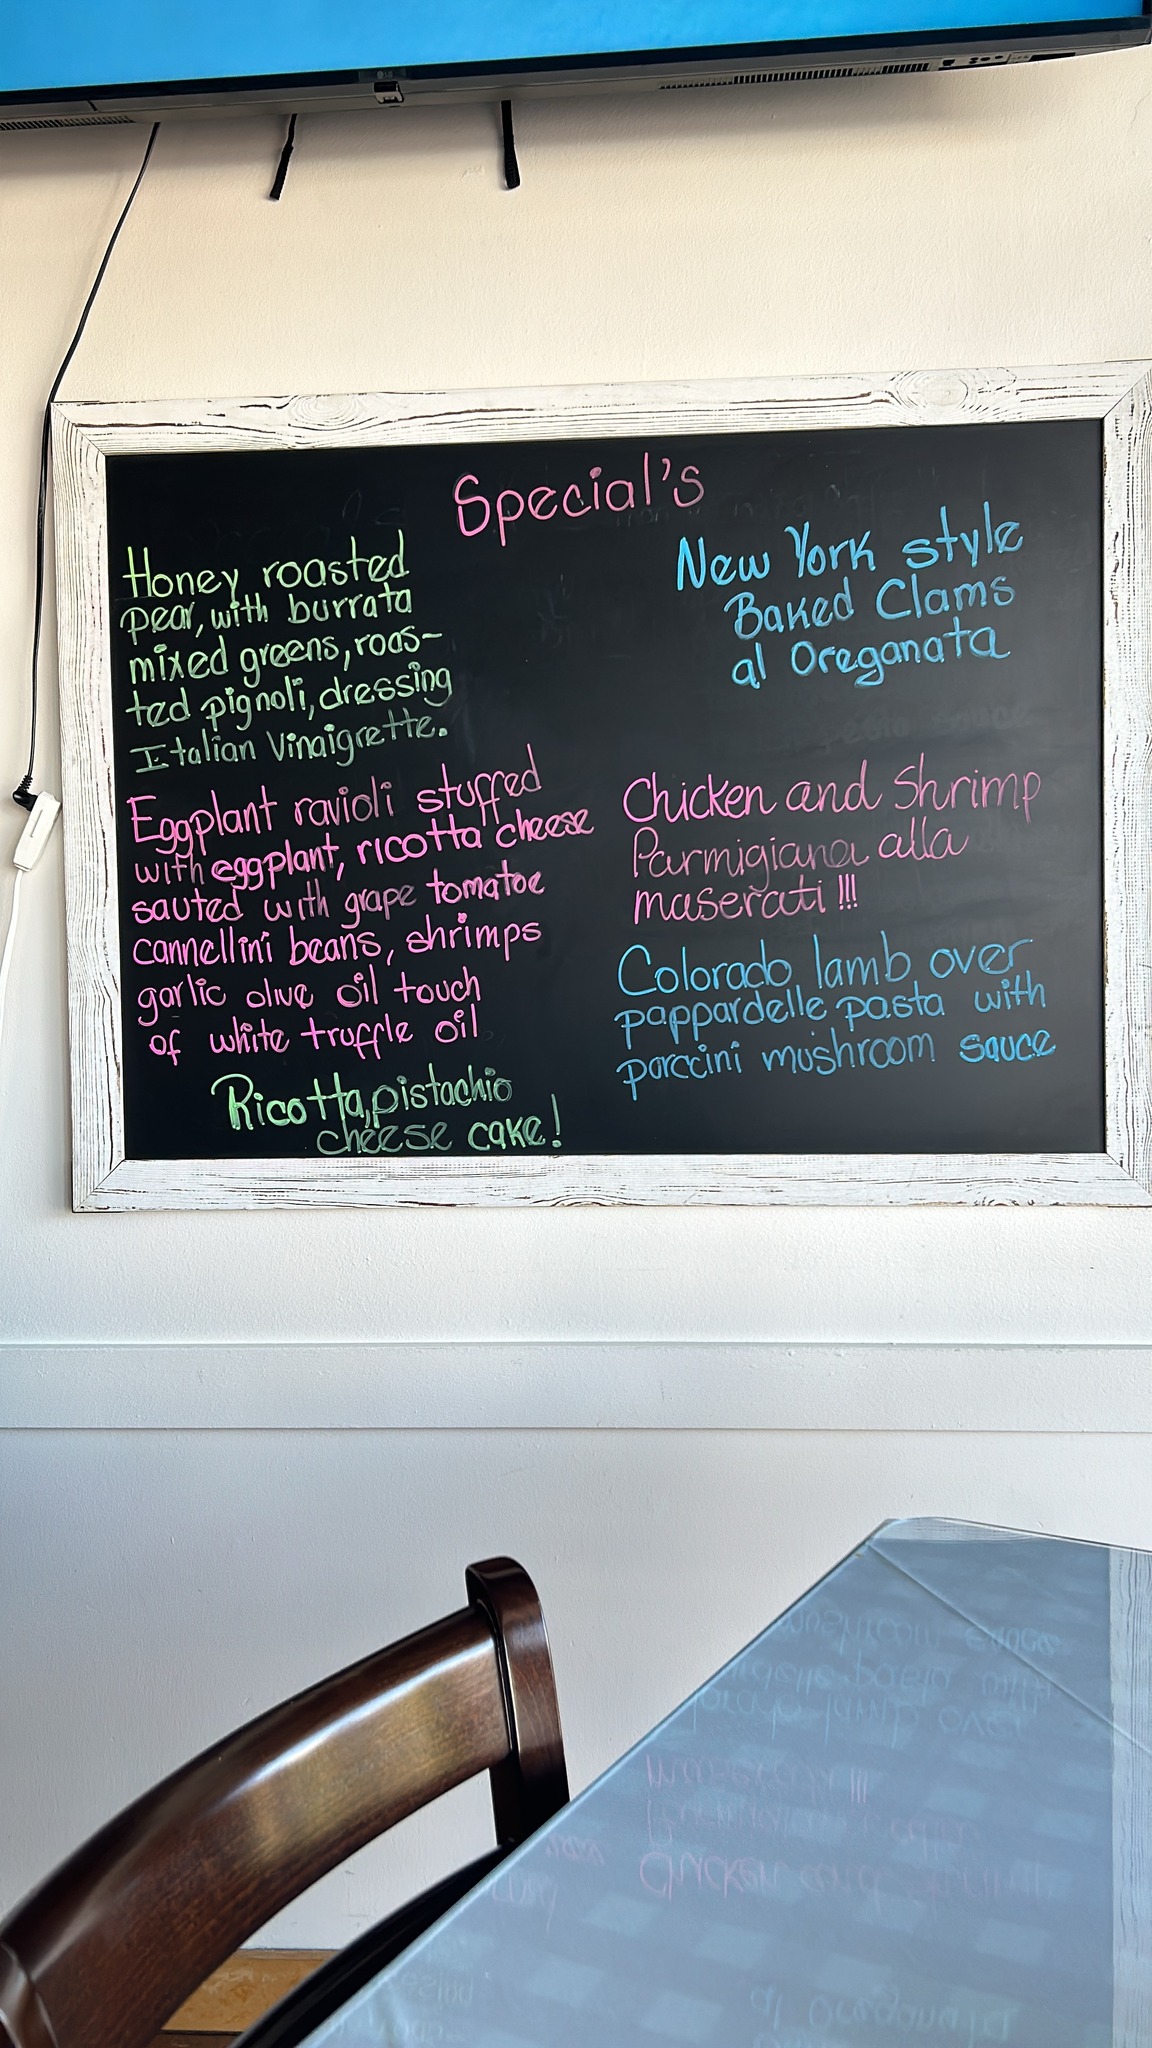 Special's
Honey roasted
pear, with burrata
mixed greens, roas-
ted pignoli, dressing
Italian Vinaigrette.
Eggplant ravioli stuffed
with eggplant, ricotta cheese
sauted with grape tomatoe
cannellini beans, shrimps
garlic olive oil touch
of white truffle oil
Ricotta, pistachio
cheese cake!
New York style
Baked Clams
al Oreganata
Chicken and Shrimp
Parmigiana alla
maserati!!!
Colorado lamb over
pappardelle pasta with
porccini mushroom sauce